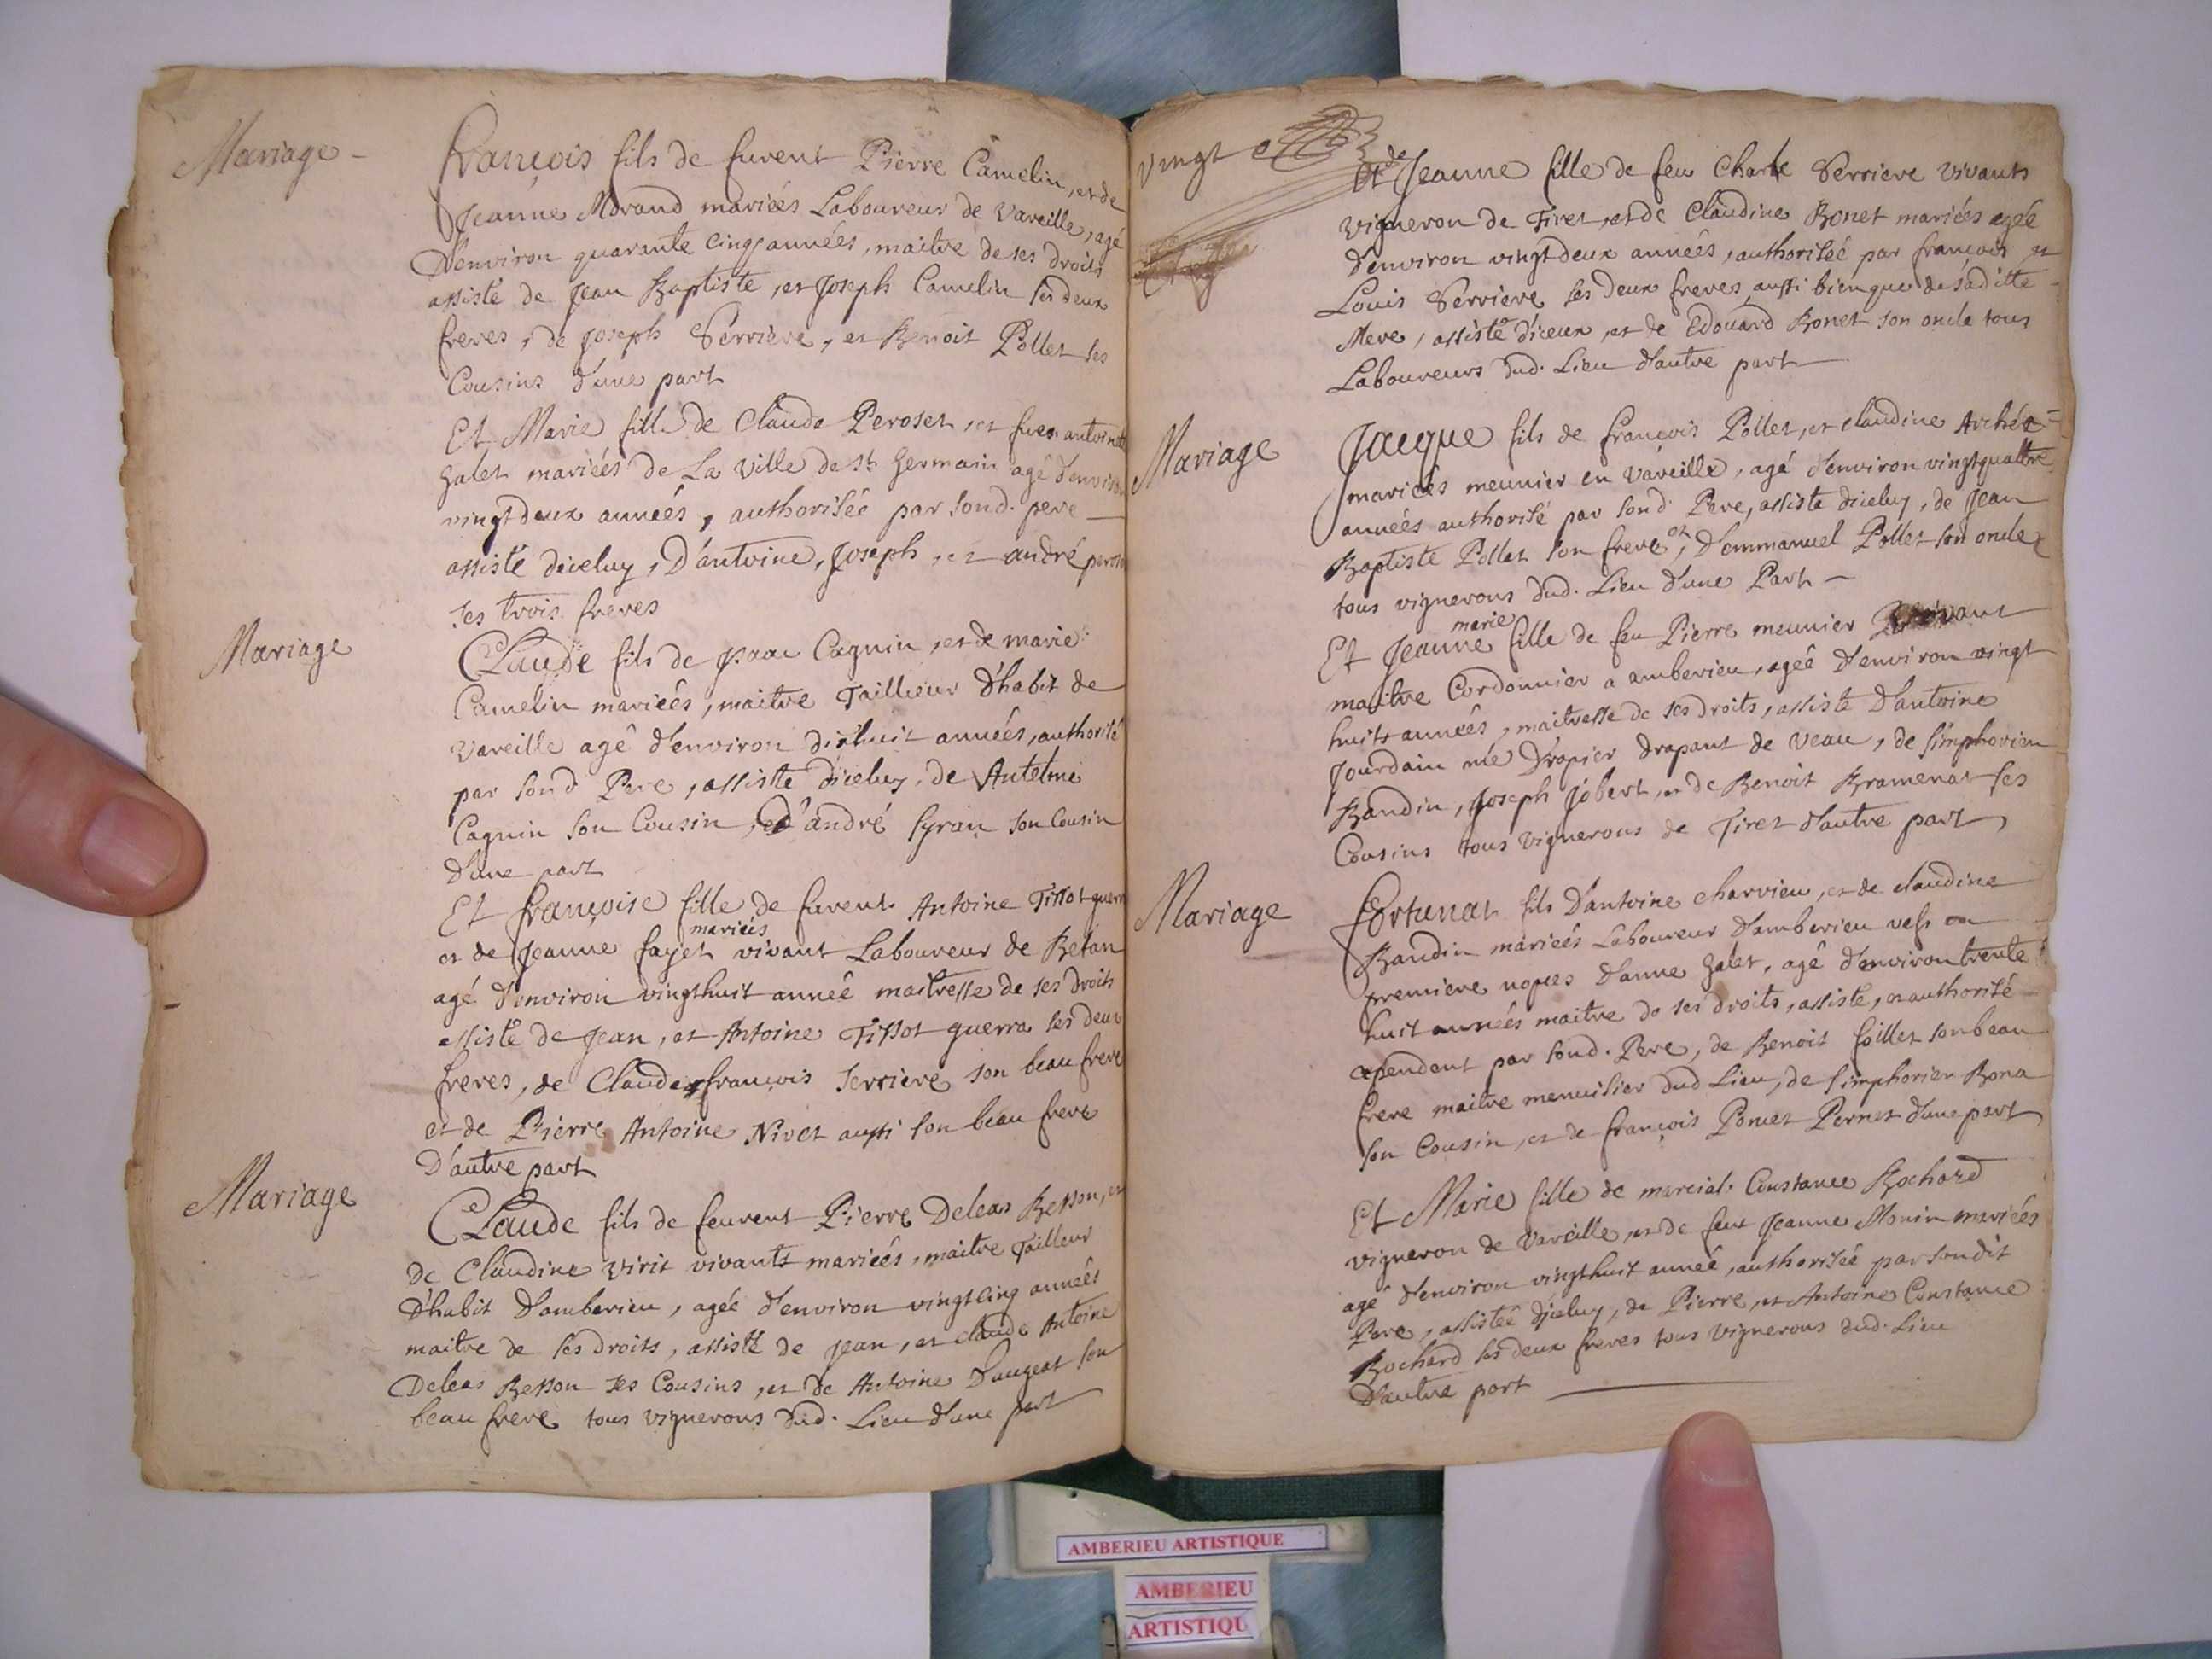 Mariage -
françois fils de furent Pierre Camelin, et de
Jeanne Morand mariées Laboureur de Vareille, agé
D'environ quarante cinq années, maitre de ses droits
assisté de Jean Baptiste, et Joseph Camelin ses deux
freres, de Joseph Serriere, et Benoit Pollet ses
Cousins d'une part
Et Marie fille de Claude Peroset, et fue antoinette
Galet mariées de La Ville de St Germain agé d'environ
vingt deux années, authorisée par sond. pere
assisté diceluy, D'antoine, Joseph, et andré
ses trois freres
Mariage
Claude fils de Isaac Cagnin, et de marie
Camelin mariées, maitre Tailleur d'habit de
Vareille agé d'environ dixhuit années, authorisé
par sond Pere, assisté diceluy, de Antelme
Cagnin son Cousin, et d'andré Syran son Cousin
d'une part
Et françoise fille de furent Antoine Tissot guerra
et de Jeanne fayet mariées vivant Laboureur de Betan
agé d'environ vingthuit année maitresse de ses droits
assisté de Jean, et Antoine Tissot guerra ses deux
freres, de Claude françois Serriere son beau frere
et de Pierre Antoine Nivet aussi son beau frere
D'autre part
Mariage
Claude fils de feurent Pierre Deleas Besson, et
de Claudine Virit vivants mariées, maitre Tailleur
D'habit d'amberieu, agée d'environ vingt cinq années
maitre de ses droits, assisté de Jean, et claude Antoine
Deleas Besson ses Cousins, et de Antoine Daugeat son
beau frere tous vignerons dud. Lieu d'une part
vingt
Et de Jeanne fille de feu Charle Serriere vivants
vigneron de Tiret, et de Claudine Bonet mariées agée
d'environ vingt deux années, authorisée par françois et
Louis Serriere ses deux freres aussi bien que de sa ditte
Mere, assisté d'iceux, et de Edouard Bonet son oncle tous
Laboureurs dud. Lieu d'autre part
Mariage
Jacque fils de françois Pollet, et claudine
mariées meunier en Vareille, agé d'environ vingt quattre
années authorisé par sond. Pere, assisté diceluy, de Jean
Baptiste Pollet son frere, et d'emmanuel Pollet son oncle
tous vignerons dud. Lieu d'une Part -
Et Jeanne marie fille de feu Pierre meunier vivant
maitre Cordonnier a amberieu, agée d'environ vingt
huits années, maitresse de ses droits, assisté D'antoine
Jourdain me Drapier drapant de Veau, de simphorien
Bandin, Joseph Jobert, et de Benoit Bramenat ses
Cousins tous vignerons de Tiret d'autre part
Mariage
Fortunat fils D'antoine charvieu, et de claudine
Bandin mariées Laboureur D'amberieu vefs en
premiere nopces d'anne Galet, agé d'environ trente
huit années maitre de ses droits, assisté, et authorisé
cependent par sond. Pere, de Benoit foillet son beau
frere maitre menuisier dud Lieu, de simphorien Bona
son Cousin, et de françois Poncet Pernet d'une part
Et Marie fille de marcial Constance Rochard
vigneron de Vareille, et de feue Jeanne Monin mariées
agé d'environ vingthuit année, authorisée par son dit
Pere, assistée diceluy, de Pierre, et Antoine Constance
Rochard ses deux freres tous vignerons dud. Lieu
D'autre part
AMBERIEU ARTISTIQUE
AMBERIEU
ARTISTIQU